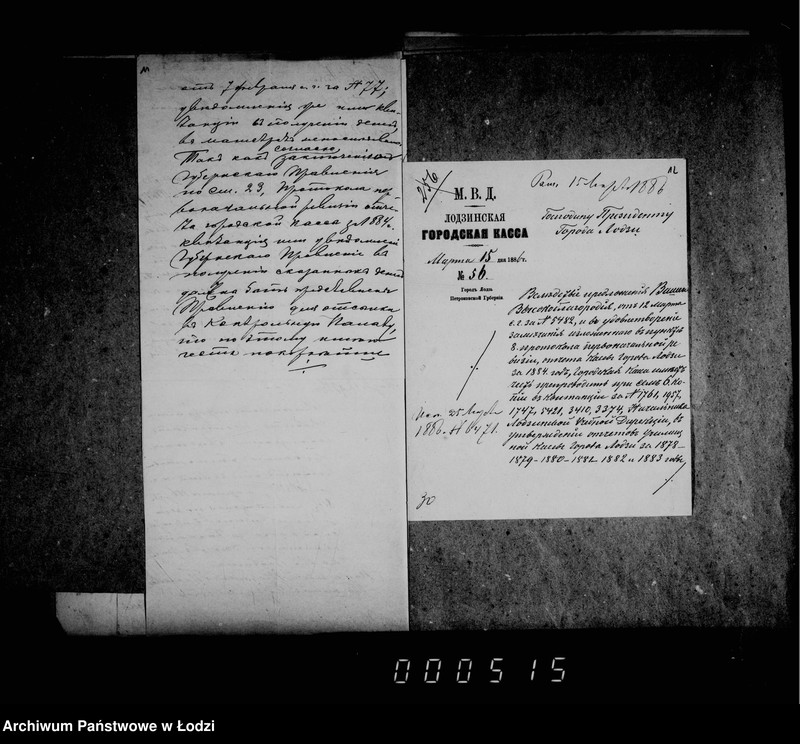 отъ 7 февраля с. г. за № 77,
въ полученіи денегъ
Такъ какъ согласно
Губернскаго Правленія
по ст. 23, протокола пер-
воначальной ревизіи отче-
та городской Кассы за 1884 г.
Губернскаго Правленія въ
полученіи сказанныхъ денегъ
Правленію для отсылки
въ Контрольную Палату,
покорнѣйше
256
М. В. Д.
ЛОДЗИНСКАЯ
ГОРОДСКАЯ КАССА
Марта 15 дня 1886 г.
№ 56.
Городъ Лодзь
Петроковской Губерніи
15 Марта 1886
Господину Президенту
Города Лодзи
Вслѣдствіе предложенія Вашего
Высокоблагородія, отъ 12 Марта
с. г. за № 5482, и въ удовлетвореніе
замѣчанія изложеннаго въ пунктѣ
8. протокола первоначальной ре-
визіи, отчета Кассы Города Лодзи
за 1884 годъ, Городская Касса имѣетъ
честь препроводить при семъ 6. ко-
пій съ квитанціи за № 1761, 1957,
1747, 5421, 3410, 3374, Начальника
Лодзинской Учебной Дирекціи, въ
утвержденіи отчетовъ Училищ-
ной Кассы Города Лодзи за 1878-
1879-1880-1881 1882 и 1883 годы
25 Марта
1886. № 6471.
30
000515
Archiwum Państwowe w Łodzi